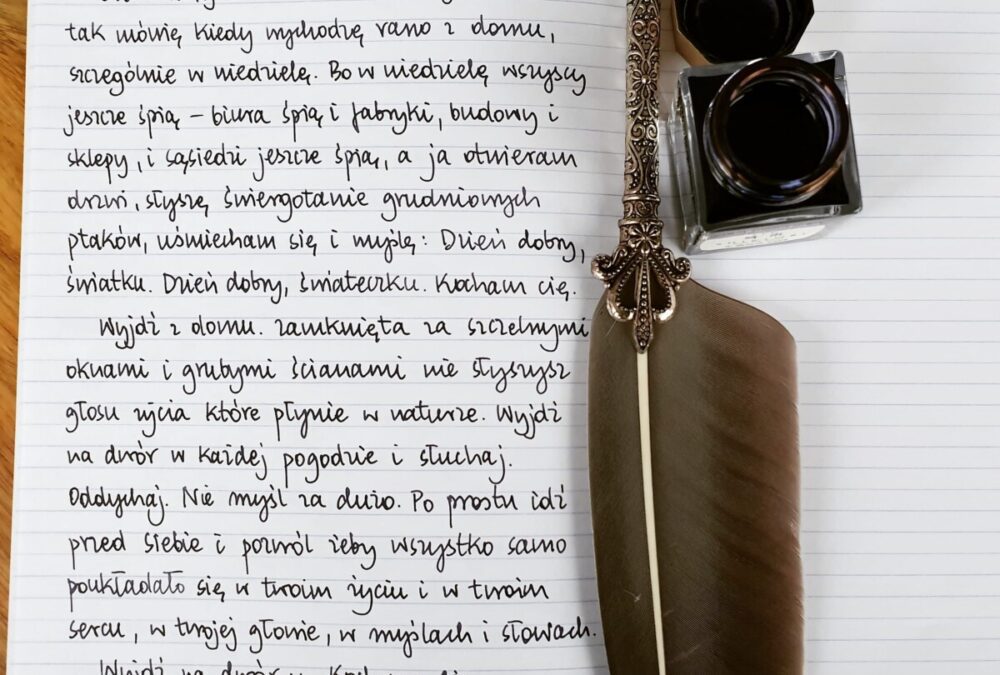 tak mówię kiedy wychodzę rano z domu,
szczególnie w niedzielę. Bo w niedzielę wszyscy
jeszcze śpią – biura śpią i fabryki, budowy i
sklepy, i sąsiedzi jeszcze śpią, a ja otwieram
drzwi, słyszę świergotanie grudniowych
ptaków, uśmiecham się i myślę: Dzień dobry,
światku. Dzień dobry, świateczku. Kocham cię.
Wyjdź z domu. Zamknięta za szczelnymi
oknami i grubymi ścianami nie słyszysz
głosu życia które płynie w naturze. Wyjdź
na dwór w każdej pogodzie i słuchaj.
Oddychaj. Nie myśl za dużo. Po prostu idź
przed siebie i pozwól żeby wszystko samo
poukładało się w twoim życiu i w twoim
sercu, w twojej głowie, w myślach i słowach.
Wyjdź na dwór